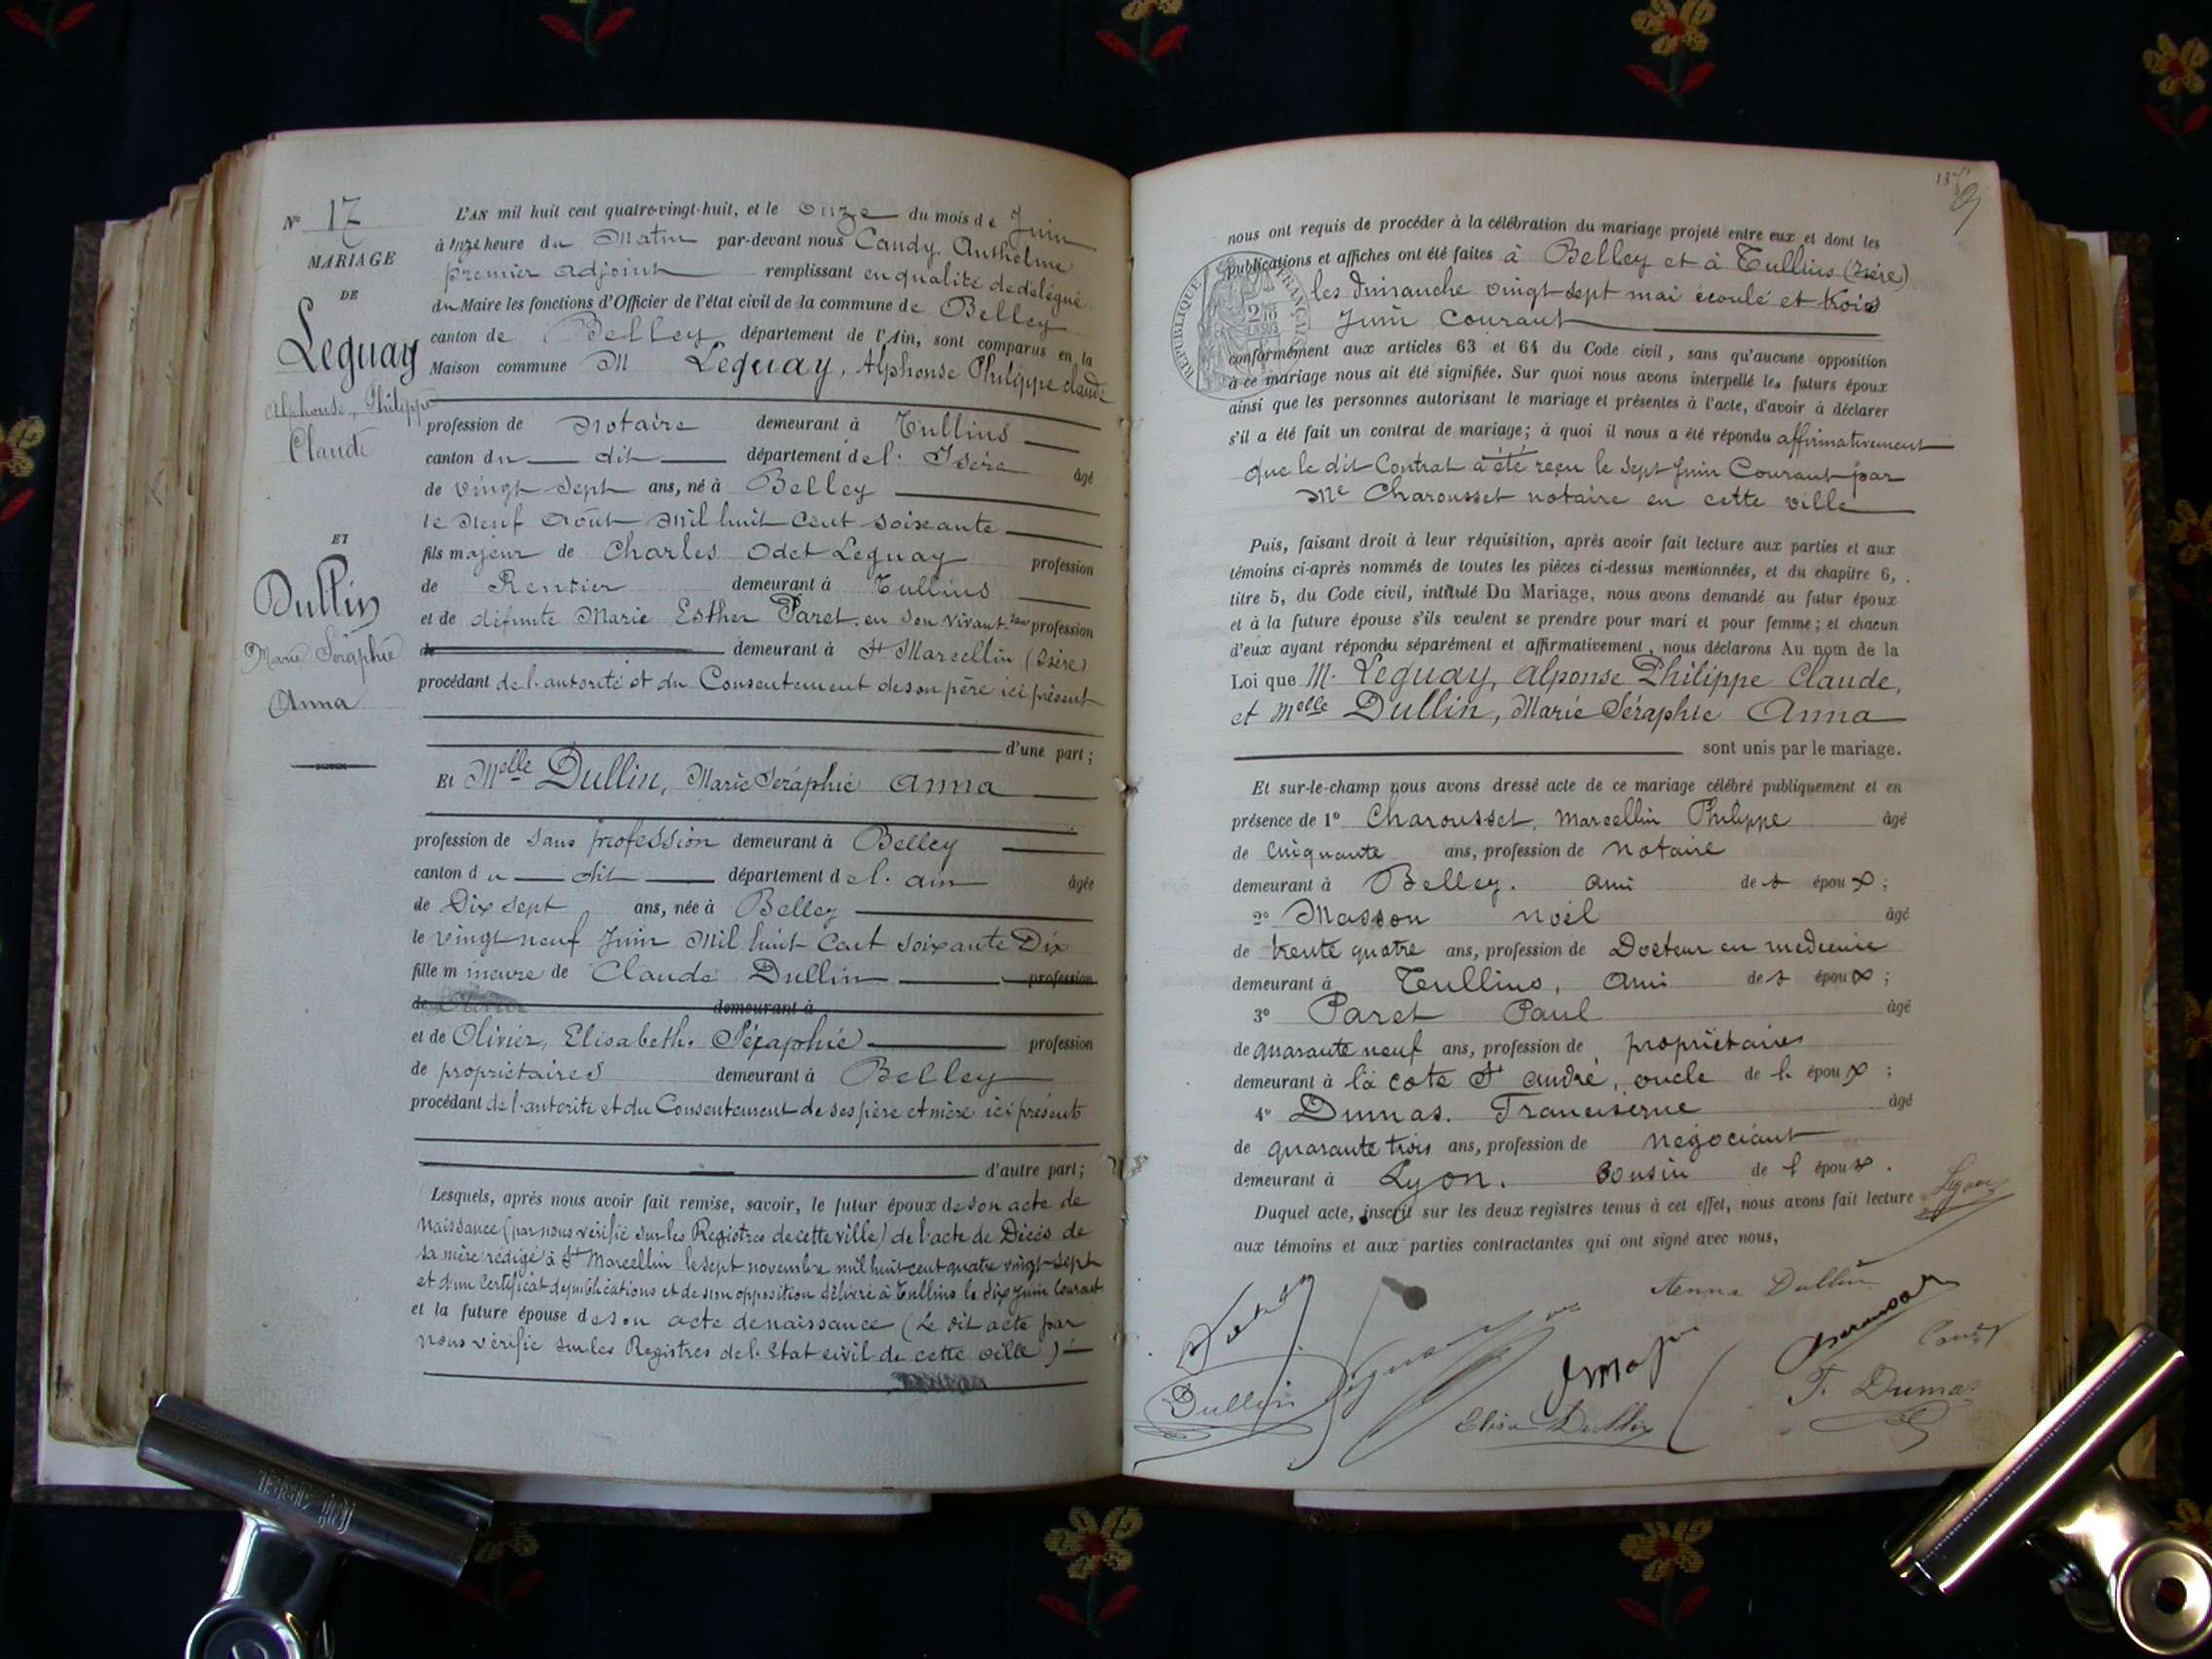 N° 17
MARIAGE
DE
Leguay
Alphonse, Philippe
Claude
ET
Dullin
Marie Séraphie
Anna
L'AN mil huit cent quatre-vingt-huit, et le onze du mois de Juin
à onze heure du Matin par-devant nous Candy, Anthelme
premier adjoint remplissant en qualité de délégué
du Maire les fonctions d'Officier de l'état civil de la commune de Belley
canton de Belley département de l'Ain, sont comparus en la
Maison commune M Leguay, Alphonse Philippe Claude
profession de Notaire demeurant à Tullins
canton du dit département de l'Isère âgé
de vingt sept ans, né à Belley
le neuf août mil huit cent soixante
fils majeur de Charles Odet Leguay profession
de Rentier demeurant à Tullins
et de défunte Marie Esther Paret, en son vivant sans profession
de demeurant à St Marcellin (Isère)
procédant de l'autorité et du Consentement de son père ici présent
d'une part;
Et Melle Dullin, Marie Séraphie Anna
profession de sans profession demeurant à Belley
canton du dit département de l'ain âgée
de Dix sept ans, née à Belley
le vingt neuf Juin mil huit cent soixante Dix
fille mineure de Claude Dullin profession
de demeurant à
et de Olivier, Elisabeth, Séraphie profession
de propriétaires demeurant à Belley
procédant de l'autorité et du Consentement de ses père et mère ici présents
d'autre part;
Lesquels, après nous avoir fait remise, savoir, le futur époux de son acte de
naissance (par nous vérifié sur les Registres de cette ville) de l'acte de Décès de
sa mère rédigé à St Marcellin le sept novembre mil huit cent quatre vingt sept
et d'un certificat de publications et de non opposition délivré à Tullins le dix juin courant
et la future épouse de son acte de naissance (Le dit acte par
nous vérifié sur les Registres de l'Etat civil de cette ville)
nous ont requis de procéder à la célébration du mariage projeté entre eux et dont les
publications et affiches ont été faites à Belley et à Tullins (Isère)
les dimanche vingt-sept mai écoulé et trois
Juin courant
REPUBLIQUE FRANÇAISE
conformément aux articles 63 et 64 du Code civil, sans qu'aucune opposition
à ce mariage nous ait été signifiée. Sur quoi nous avons interpellé les futurs époux
ainsi que les personnes autorisant le mariage et présentes à l'acte, d'avoir à déclarer
s'il a été fait un contrat de mariage; à quoi il nous a été répondu affirmativement
que le dit Contrat a été reçu le sept Juin Courant par
Me Charousset notaire en cette ville
Puis, faisant droit à leur réquisition, après avoir fait lecture aux parties et aux
témoins ci-après nommés de toutes les pièces ci-dessus mentionnées, et du chapitre 6,
titre 5, du Code civil, intitulé Du Mariage, nous avons demandé au futur époux
et à la future épouse s'ils veulent se prendre pour mari et pour femme; et chacun
d'eux ayant répondu séparément et affirmativement, nous déclarons Au nom de la
Loi que M. Leguay, Alponse Philippe Claude,
et Melle Dullin, Marie Séraphie Anna
sont unis par le mariage.
Et sur-le-champ nous avons dressé acte de ce mariage célébré publiquement et en
présence de 1° Charousset, Marcellin Philippe âgé
de cinquante ans, profession de notaire
demeurant à Belley. ami des époux;
2° Masson noël âgé
de trente quatre ans, profession de Docteur en medecine
demeurant à Tullins, ami des époux;
3° Paret Paul âgé
de quarante neuf ans, profession de propriétaires
demeurant à la cote St andré, oncle de l'époux;
4° Dumas. Francisque âgé
de quarante trois ans, profession de négociant
demeurant à Lyon. Cousin de l'époux.
Duquel acte, inscrit sur les deux registres tenus à cet effet, nous avons fait lecture
aux témoins et aux parties contractantes qui ont signé avec nous,
Leguay
Anna Dullin
Candy
Dullin
Elisa Dullin
F. Dumas